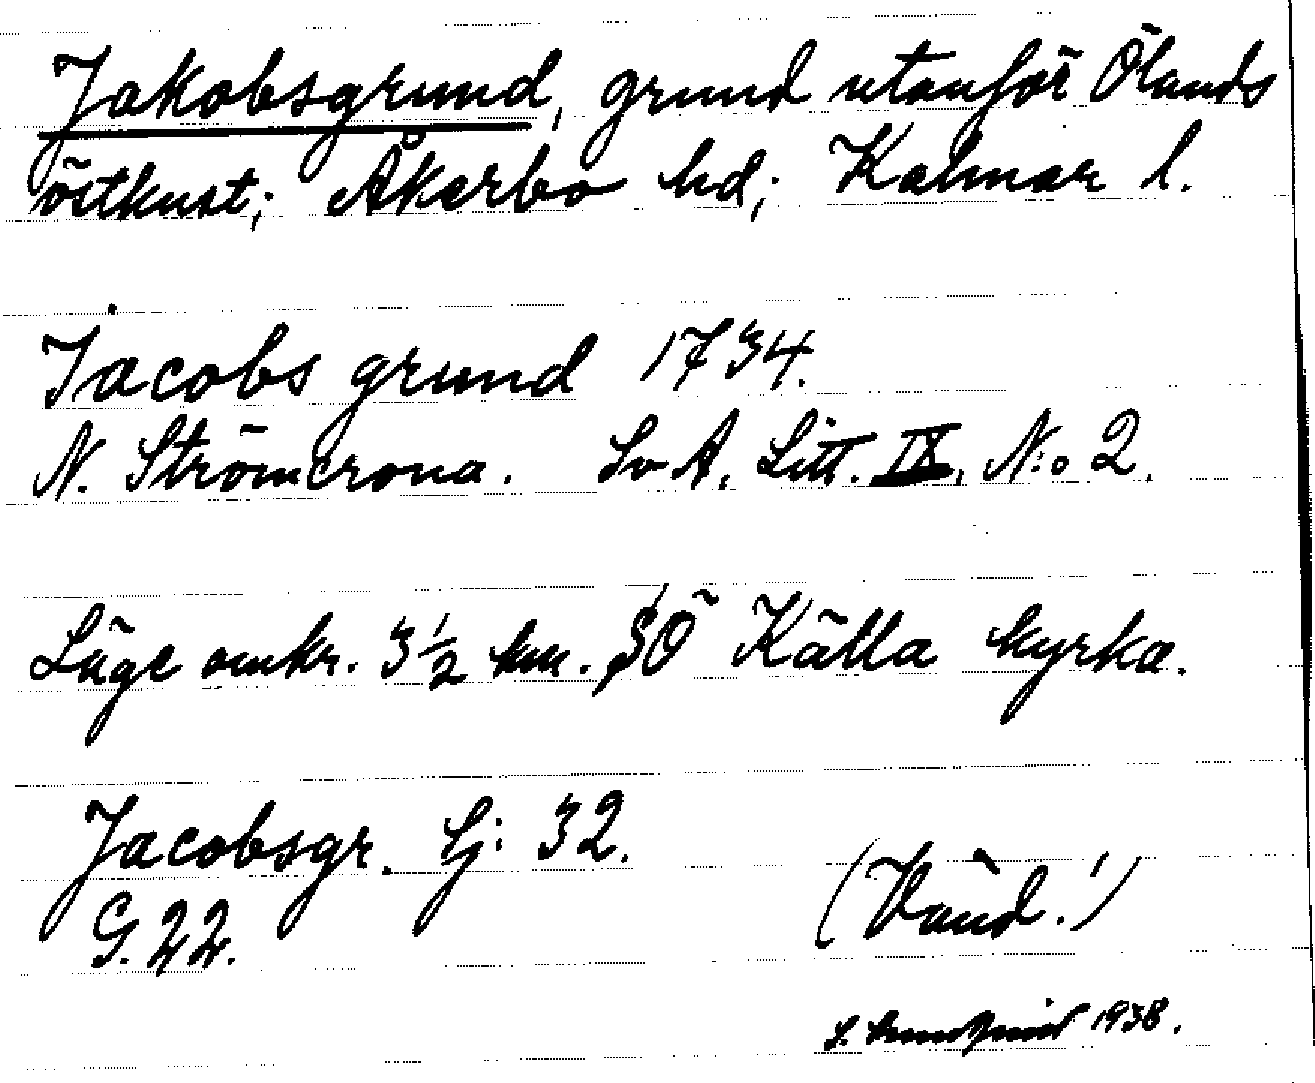 Jakobsgrund, grund utanför Ölands
östkust; Åkerbo hd; Kalmar l.
Jacobs grund 1734.
N. Strömcrona. SvA, Litt. IX, N:o 2.
Läge omkr. 3½ km. SÖ Källa kyrka.
Jacobsgr. Sj: 32.
G. 22.
(Vänd!)
1938.